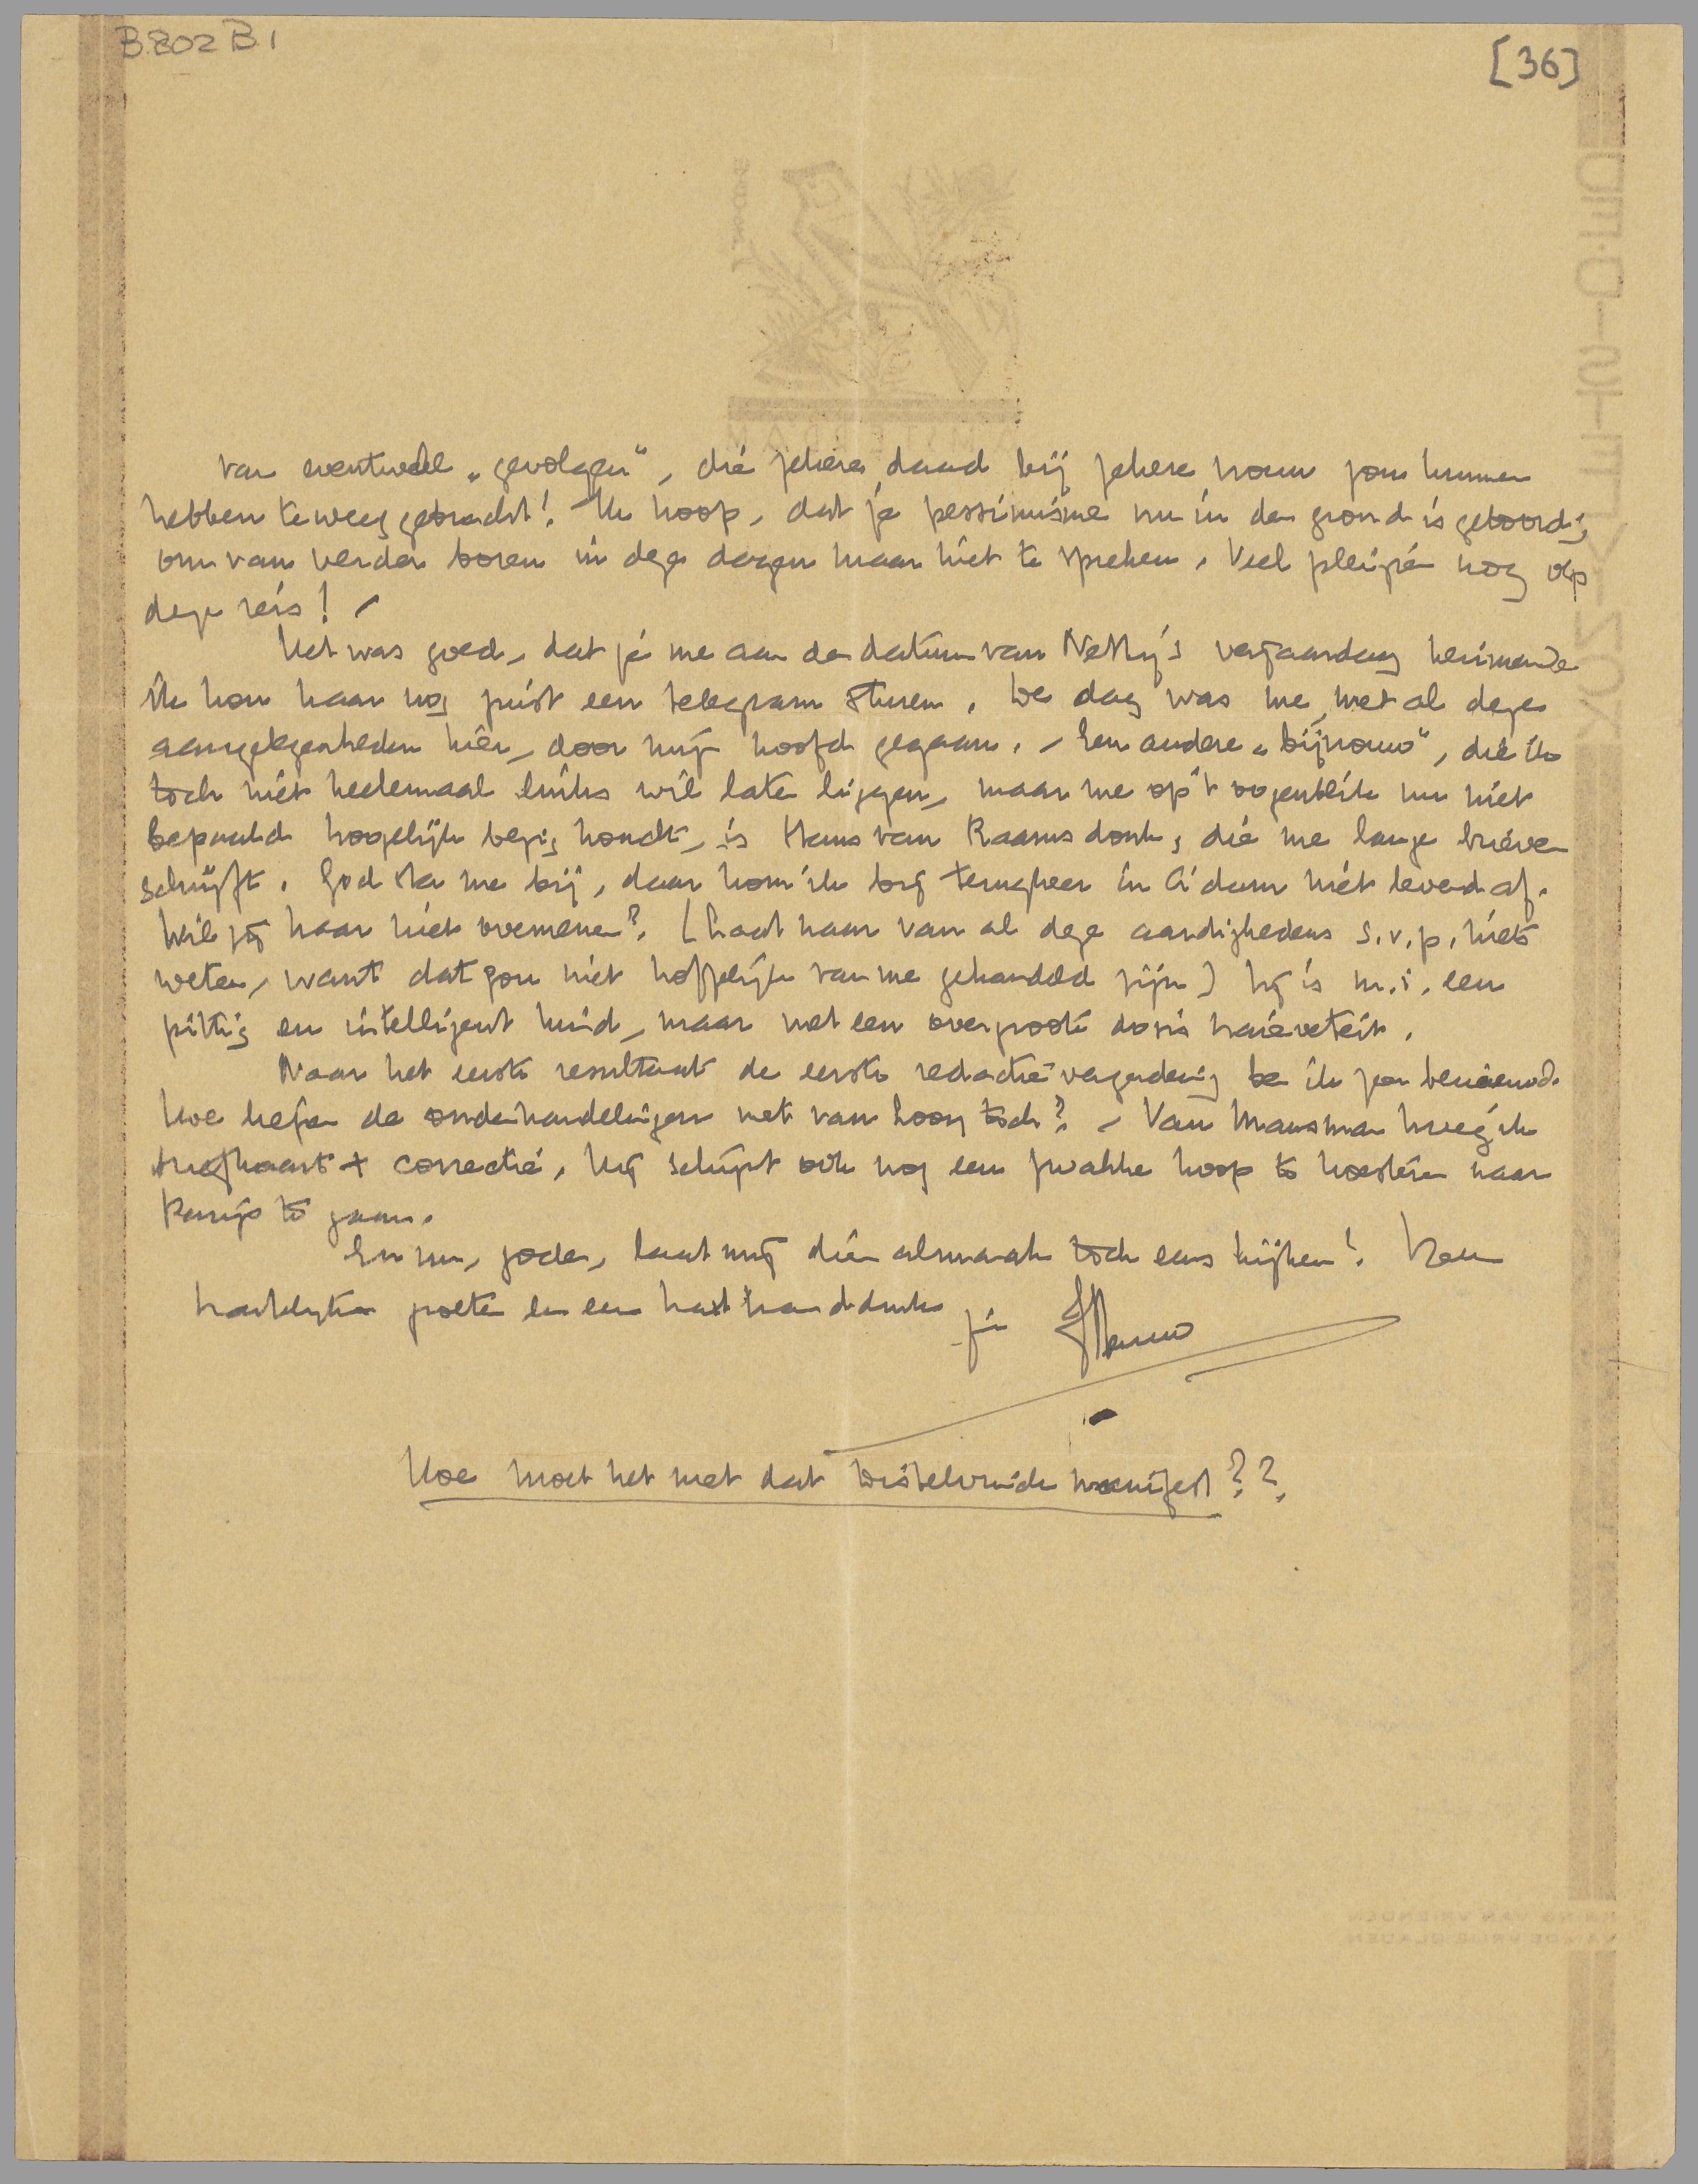 B.802 B.1
[36]
van eventueele „gevolgen", die zekere daad bij zekere vrouw zou kunnen
hebben teweeggebracht! Ik hoop, dat je pessimisme nu in den grond is geboord;
om van verder boren in deze dagen maar niet te spreken. Veel pleizier nog op
deze reis! –
Het was goed, dat je me aan den datum van Netty's verjaardag herinnerde
ik kon haar nog juist een telegram sturen. De dag was me, met al deze
aangelegenheden hier, door mijn hoofd gegaan. – Een andere „bijvrouw", die ik
toch niet heelemaal links wil laten liggen, maar me op 't oogenblik nu niet
bepaald hoogelijk bezig houdt, is Hans van Raamsdonk, die me lange brieven
schrijft. God sta me bij, daar kom ik bij terugkeer in A'dam niet levend af.
Wil jij haar niet overnemen? (Laat haar van al deze aardigheden s.v.p. niets
weten, want dat zou niet hoffelijk van me gehandeld zijn) Zij is m.i. een
pittig en intelligent kind, maar met een overgroote dosis naieveteit.
Naar het eerste resultaat der eerste redactievergadering ben ik zeer benieuwd.
Hoe liepen de onderhandelingen met van Loon toch? – Van Marsman kreeg ik
briefkaart + correctie. Hij schijnt ook nog een zwakke hoop te koesteren naar
Parijs te gaan.
En nu, jodem, laat mij dien almanak toch eens kijken! Veel
hartelijke groeten en een hartl handdruk
je Menno
Hoe moet het met dat Distelvinck manifest??
KRING VAN VRIENDEN
VAN DE VRIJE BLADEN